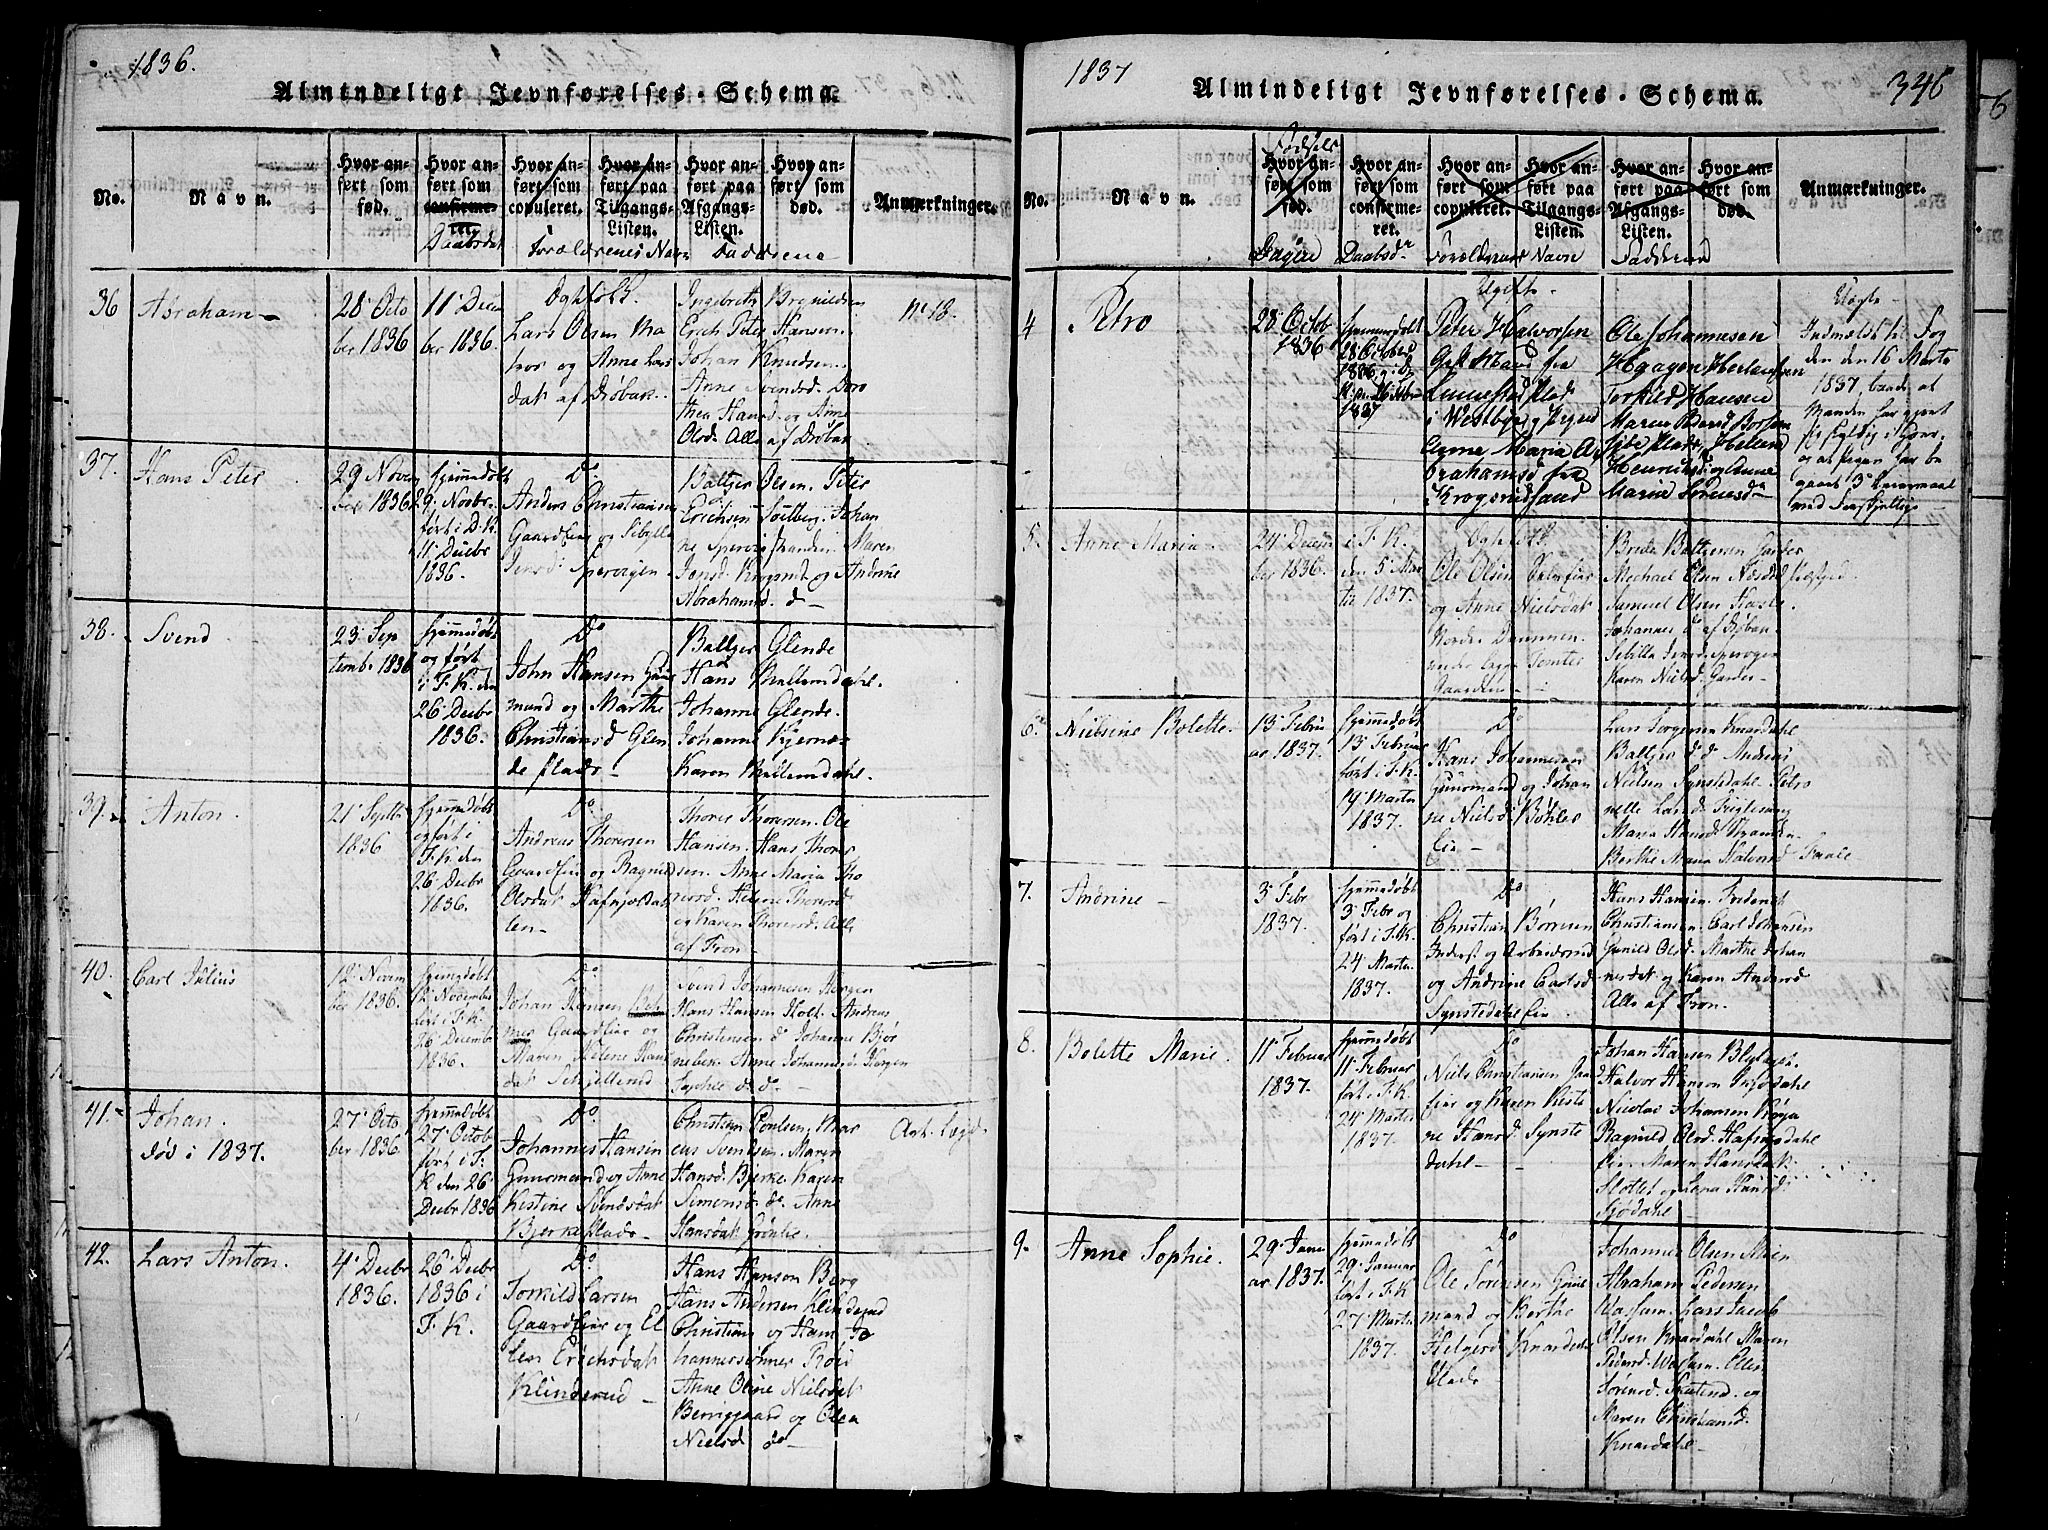 1836.
Almindeligt Jevnførelses-Schema.
No.
Navn.
Hvor an-
ført som
fød.
Hvor an-
ført som
confirme-
ret.
Daabsdat
Hvor an-
ført som
copuleret.
Hvor an-
ført paa
Tilgangs-
Listen.
Forældrenes Navn
Hvor an-
ført paa
Afgangs-
Listen.
Hvor an-
ført som
død.
Faddrene
Anmærkninger.
36
Abraham
28 Octo
ber 1836
11 Decem
ber 1836.
Ægtefolk.
Lars Olsen Ma
tros og Anne Lars
dat af Drøbak.
Ingebreth Brynildsen
Erich Peter Hansen.
Johan Knudsen.
Anne Svendsd. Doro
thea Hansd. og Anne
Olsd. Alle af Drøbak
No 18.
37.
Hans Peter
29 Novem
ber 1836
hjemmedøbt
29 Novbr.
ført i D. K.
11 Decbr
1836.
Do
Anders Christiansen
Gaardfier og Sibylle
Jensd. Spervigen
Baltzer Olsen. Peter
Erichsen Solberg. Johan
ne Spervigstranden. Maren
Jensd. Krogsrud og Andrine
Abrahamsd. do
38.
Svend
23 Sep
tembr 1836
hjemmedøbt
og ført
i F. K. den
26 Decbr
1836.
Do
John Hansen Huus
mand og Marthe
Christiansd Glen
de plads
Baltzer Glende
Hans Mellemdahl.
Johanne Glende.
Johanne Kjernæs
Karen Mellemdahl.
39.
Anton.
21 Septbr
1836
hjemmedøbt
og ført i
F. K. den
26 Decbr
1836.
Do
Andreas Thoresen
Gaardfier og Ragnild
Olsdat Hafnsjødal
len
Thores Thoresen. Ole
Hansen. Hans Thores
sen. Anne Maria Tho
resd. Helene Thoresd
og Karen Thoresd. Alle
af Fron
40.
Carl Julius
12 Novem
ber 1836.
hjemmedøbt
12 November
ført i F. K.
26 Decembr
1836.
Do
Johan Hansen
Gaardfier og
Maren Helene Hans
dat Schjellerud
Svend Johannesen Horgen
Hans Hansen Holt. Andreas
Christensen do Johanne Bjør
nebek. Anne Johannesd. Horgen
Sophie d. d.
41.
Johan.
død i 1837.
27 Octo
ber 1836
hjemmedøbt
27 Octob
ført i F.
K den 26
Decbr 1836
Do
Johannes Hansen
Huusmand og Anne
Kistine Svendsdat
Bjerkeplads
Christian Poulsen. Mar
cus Svendsen. Maren
Hansd. Bjerke. Karen
Simensd. do. Anne
Hansdat Grønlie.
42.
Lars Anton.
4 Decbr
1836.
26 Decbr
1836 i
F. K.
Do
Torkild Larsen
Gaardfier og El
len Erichsdat
Klinderud
Hans Hanson Berg
Hans Andersen Klinderud
Christian og Hans Jo
hannessønner Røed
Anne Oline Nielsdat
Berriggaard og Olea
Nielsd do
1837
Almindeligt Jevnførelses-Schema.
346
No.
Navn.
Fødsels
Hvor an-
ført som
fød.
Dagene
Hvor an-
ført som
confirme-
ret.
Daabsd
Hvor an-
ført som
copuleret.
Hvor an-
ført paa
Tilgangs-
Listen.
Forældrenes Navne
Hvor an-
ført paa
Afgangs-
Listen.
Hvor an-
ført som
død.
Fadderne
Anmærkninger.
4
Petro
28 Octob
1836
hjemmedøbt
28 October
1836 og i D.
K. den
1837
Ugifte
Peter Halvorsen
Gift Mand fra
Plads
i Westbye og Pigen
Anne Maria A
brahamsd fra
Krogsrudsand
Ole Johannesen
Haagen Herlaufsen
Torkild Hansen
Maren
Hellene
Henriksd. og Anne
Maria Sørensd.
Uægte
Indmeldt til Fog
den den 16 Marts
1837, baade at
Manden har gjort
sig skyldig i Hoer.
og at Pigen har be
gaaet 3de Leiermaal
med Forskjellige
5.
Anne Maria
24 Decem
ber 1836.
i F. K.
den 5 Mar
tii 1837.
Ægtefolk.
Ole Olsen
og Anne Nielsdat
Nordre Dammen
under
Gaarden
Brede Baltzersen Garder
Mechael Olsen Næsset
Samuel Olsen Hasle.
Johannes do af Drøbak
Sebilla Jensd. Spervigen
Karen Nielsd. Garder
6
Nielsine Bolette.
13 Febru
ar 1837.
hjemmedøbt
13 Februar
ført i F. K.
19 Marts
1837.
Do
Hans Johannesen
Huusmand og Johan
ne Nielsd Bøhler
Eie
Lars Jørgensen Knardahl
Baltzer d. d. Andreas
Nielsen Synstedahl. Petro
nelle Larsd.
Maria Hansd. Stranden
Berthe Maria Halvorsd. Fraale
7.
Andrine
3 Febr
1837.
hjemmedøbt
3 Febr og
ført i F. K.
24 Marts.
1837.
Do
Christian Børresen
Inderst og Arbeidsmd
og Andrine Carlsd
Synstedahl Eie
Hans Hansen. Frederik
Christiansen. Carl Johansen
Gunild Olsd. Marthe Johan
nesdat og Karen Andersd
Alle af Fron
8.
Bolette Marie.
11 Februar
1837.
hjemmedøbt
11 Februar
ført i F. K.
24 Marts
1837.
Do
Niels Christiansen Gaard
fier og Karen Kisti
ne Hansd. Synste
dahl
Johan Hansen Blylaget.
Halvor Hansen Sjødahl
Nicolai Johansen Krøya
Ragnild Olsd. Hafnsjødahl
Eie. Maren Hansd
Slottet og Lena Hansd.
Sjødahl
9.
Anne Sophie.
29 Janu
ar 1837.
hjemmedøbt
29 Januar
ført i F. K
27 Marts
1837.
Do
Ole Sørensen Huus
mand og Berthe
Helgesd Knardahl
Plads
Johannes Olsen Moen
Abraham Pedersen
Wassum. Lars Jacob
Olsen Knardahl. Maren
Pedersd. Wassum. Ellen
Sørensd. og
Maren Christiansd.
Knardahl